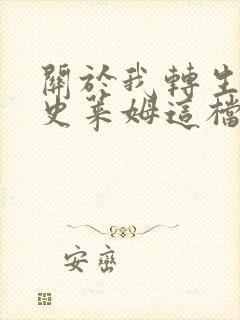 關於我轉生
史萊姆這檔
安巒